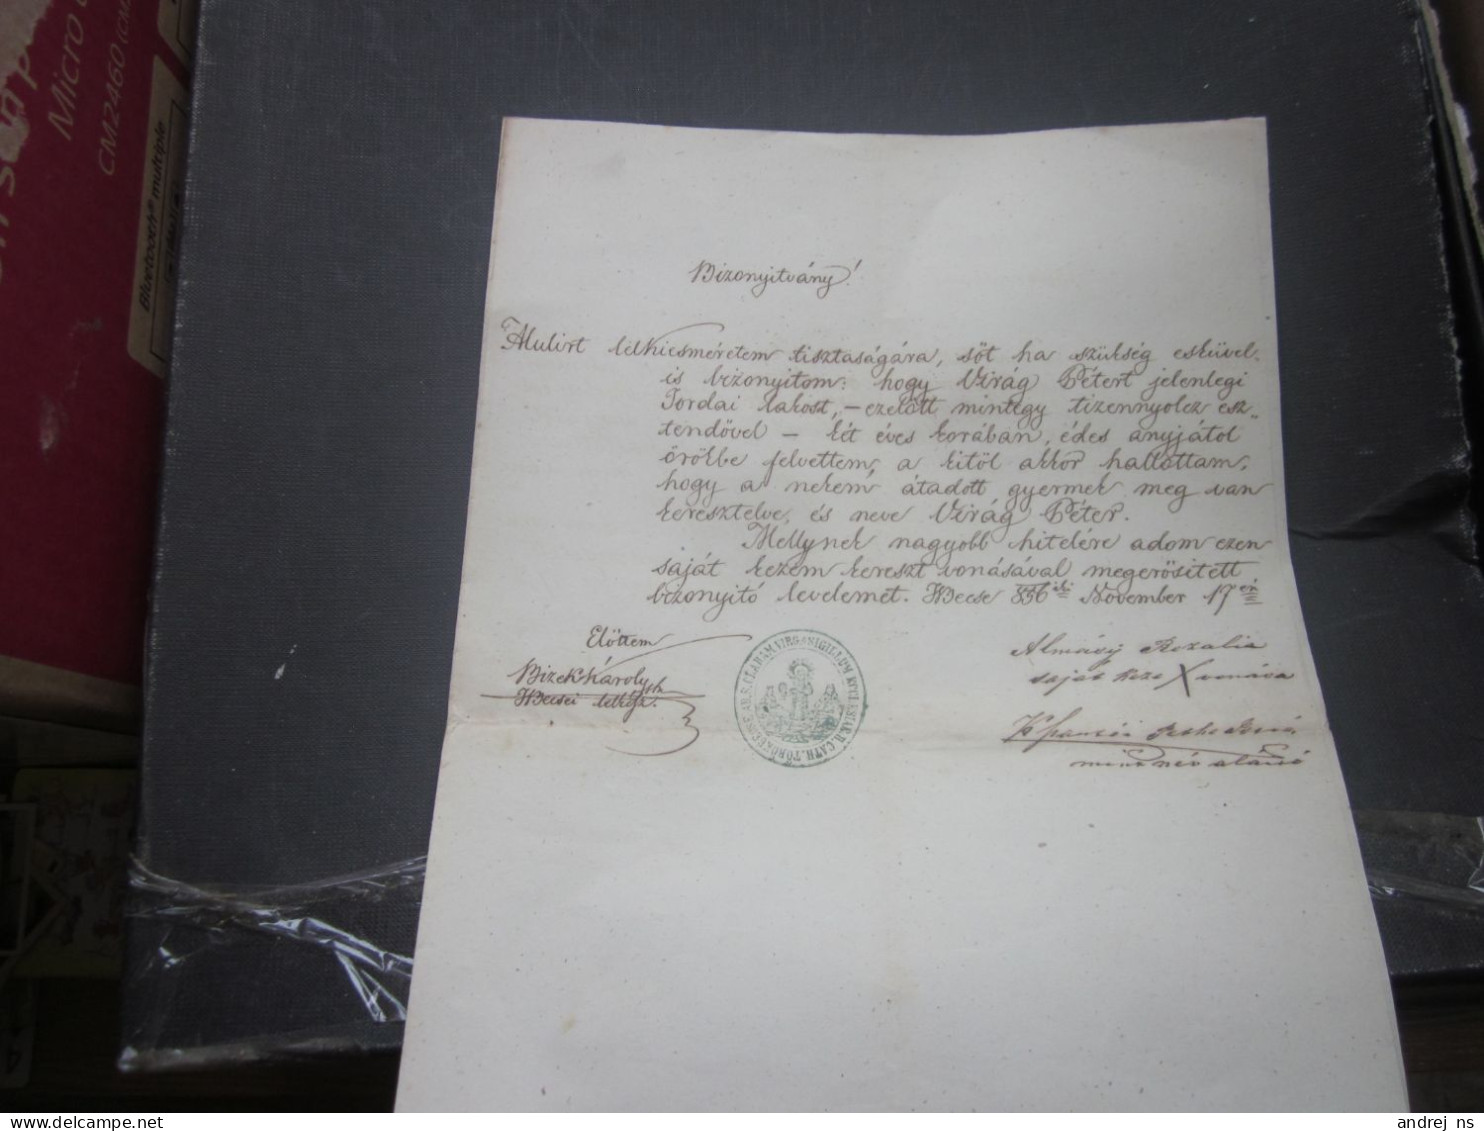 Micro
CM2460 (CM2
Bluetooth® multiple
Bizonyitvány!
Alulirt lelkiesméretem tisztaságára, sőt ha szükség esküvel
is bizonyitom: hogy Virág Pétert jelenlegi
Tordai lakost, – ezelőtt mintegy tizennyolcz esz„
tendővel – két éves korában, édes anyjától
örökbe felvettem, a kitől akkor hallottam,
hogy a nekem átadott gyermek meg van
keresztelve, és neve Virág Péter.
Mellynek nagyobb hitelére adom ezen
saját kezem kereszt vonásával megerősitett
bizonyitó levelemet. ÓBecse 856iki November 17én
Előttem
Bizek Károly
ÓBecsei lelkész.
Almásy Rozalia
saját keze X vonása
mint név aláiró
andrej ns